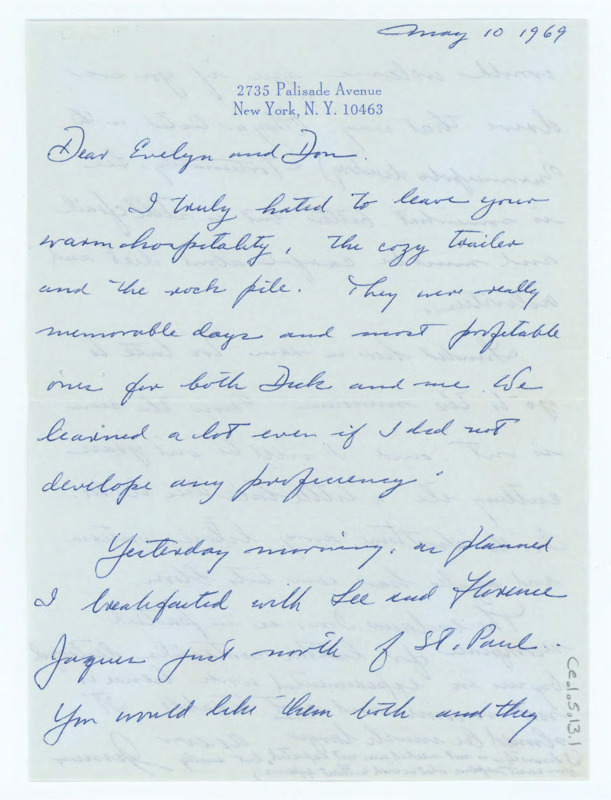 May 10 1969
2735 Palisade Avenue
New York, N. Y. 10463
Dear Evelyn and Don.
I truly hated to leave your
warm hospitality, the cozy trailer
and the rock pile. They were really
memorable days and most profitable
ones for both Dick and me. We
learned a lot even if I did not
develope any proficiency.
Yesterday morning, as planned
I breakfasted with Lee and Florence
Jaques just north of St. Paul.
You would like them both and they
Ce.1.5.13.1